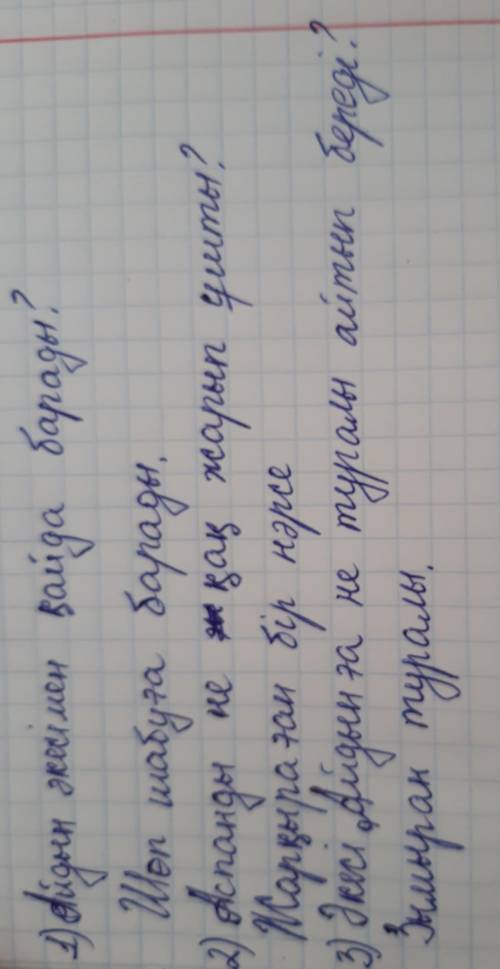 1) Айдын әкесімен қайда барады?
Шөп шабуға барады.
2) Аспанды не қақ жарып ұшты?
Жарқыраған бір нәрсе
3) Әкесі Айдынға не туралы айтып береді?
Зымыран туралы.